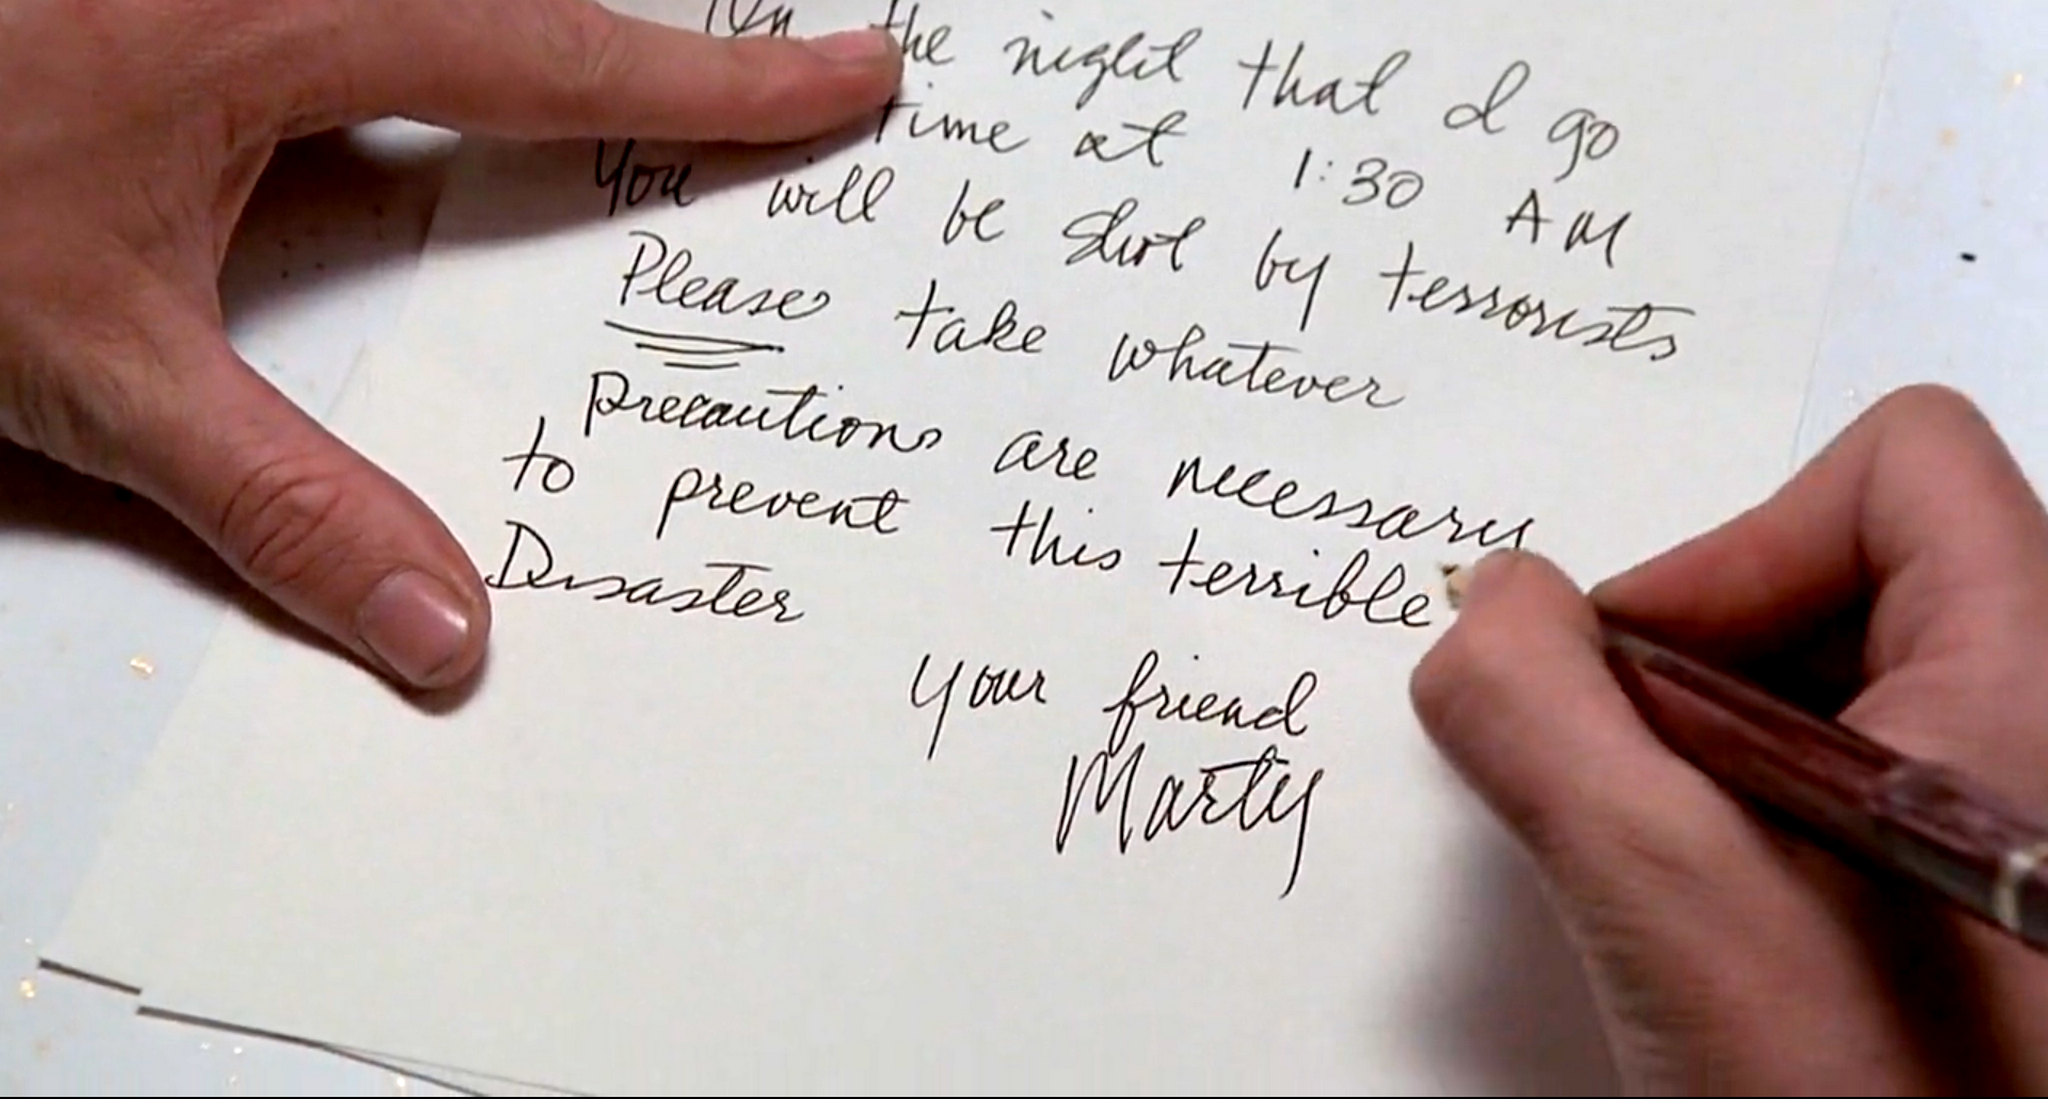 On the night that I go
time at 1:30 AM
You will be shot by terrorists
Please take whatever
Precautions are necessary
to prevent this terrible
Disaster
Your friend
Marty